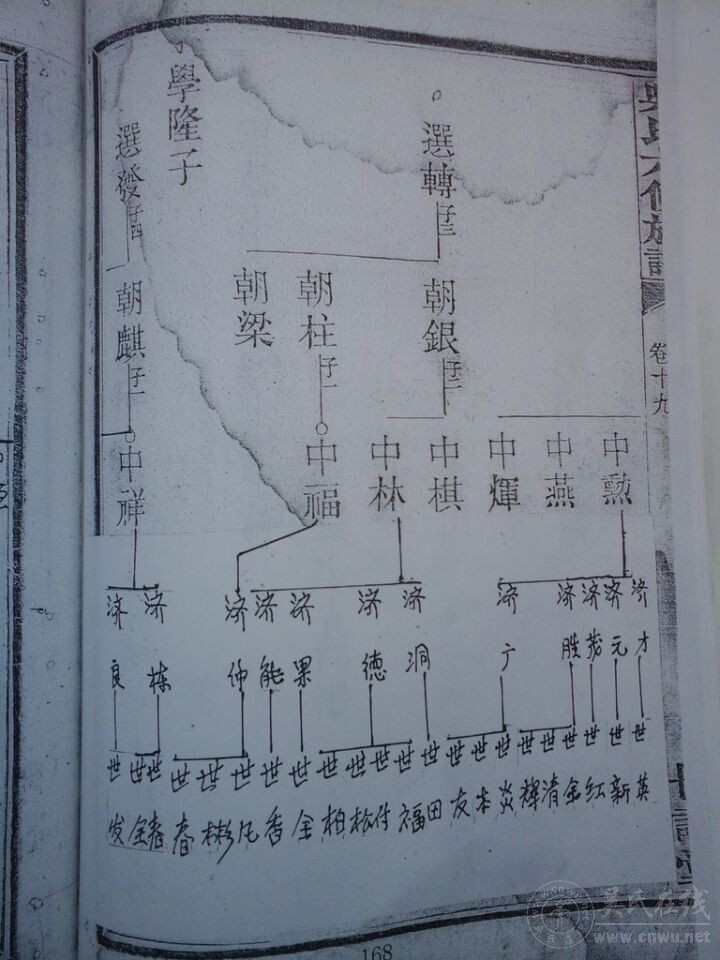 卷十九
選轉 子三
學隆子
選發 子四
朝銀 子二
朝柱 子一
朝梁
朝麒 子一
中勲
中燕
中輝
中棋
中林
中福
中祥
济才
济元
济
济胜
济广
济洞
济德
济果
济能
济仲
济栋
济良
世英
世新
世红
世金
世清
世辉
世炎
世本
世友
世田
世福
世付
世松
世柏
世全
世香
世凡
世彬
世春
世春
世全
世发
168
吴氏在线
www.cnwu.net